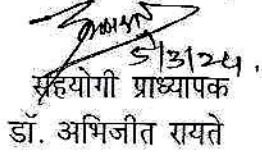 5/3/24.
सहयोगी प्राध्यापक
डॉ. अभिजीत रायते